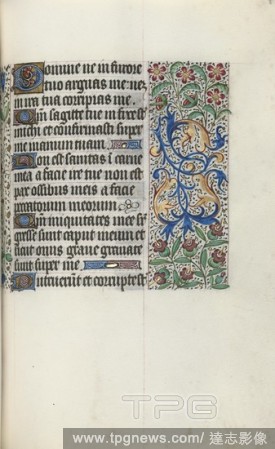 Domine ne in furore
tuo arguas me: ne
in ira tua corripias me.
Qm̄ sagitte tue infixe st
michi et confirmasti super
me manum tuam.
Non est sanitas ī carne
mea a facie ire tue non est
pax ossibus meis a facie
peccatorum meorum
Qm̄ iniquitates mee sup̄
gresse sunt caput meum et
sicut onus grave gravate
sunt super me
Putruerūt et corrupte st
TPG
www.tpgnews.com/達志影像